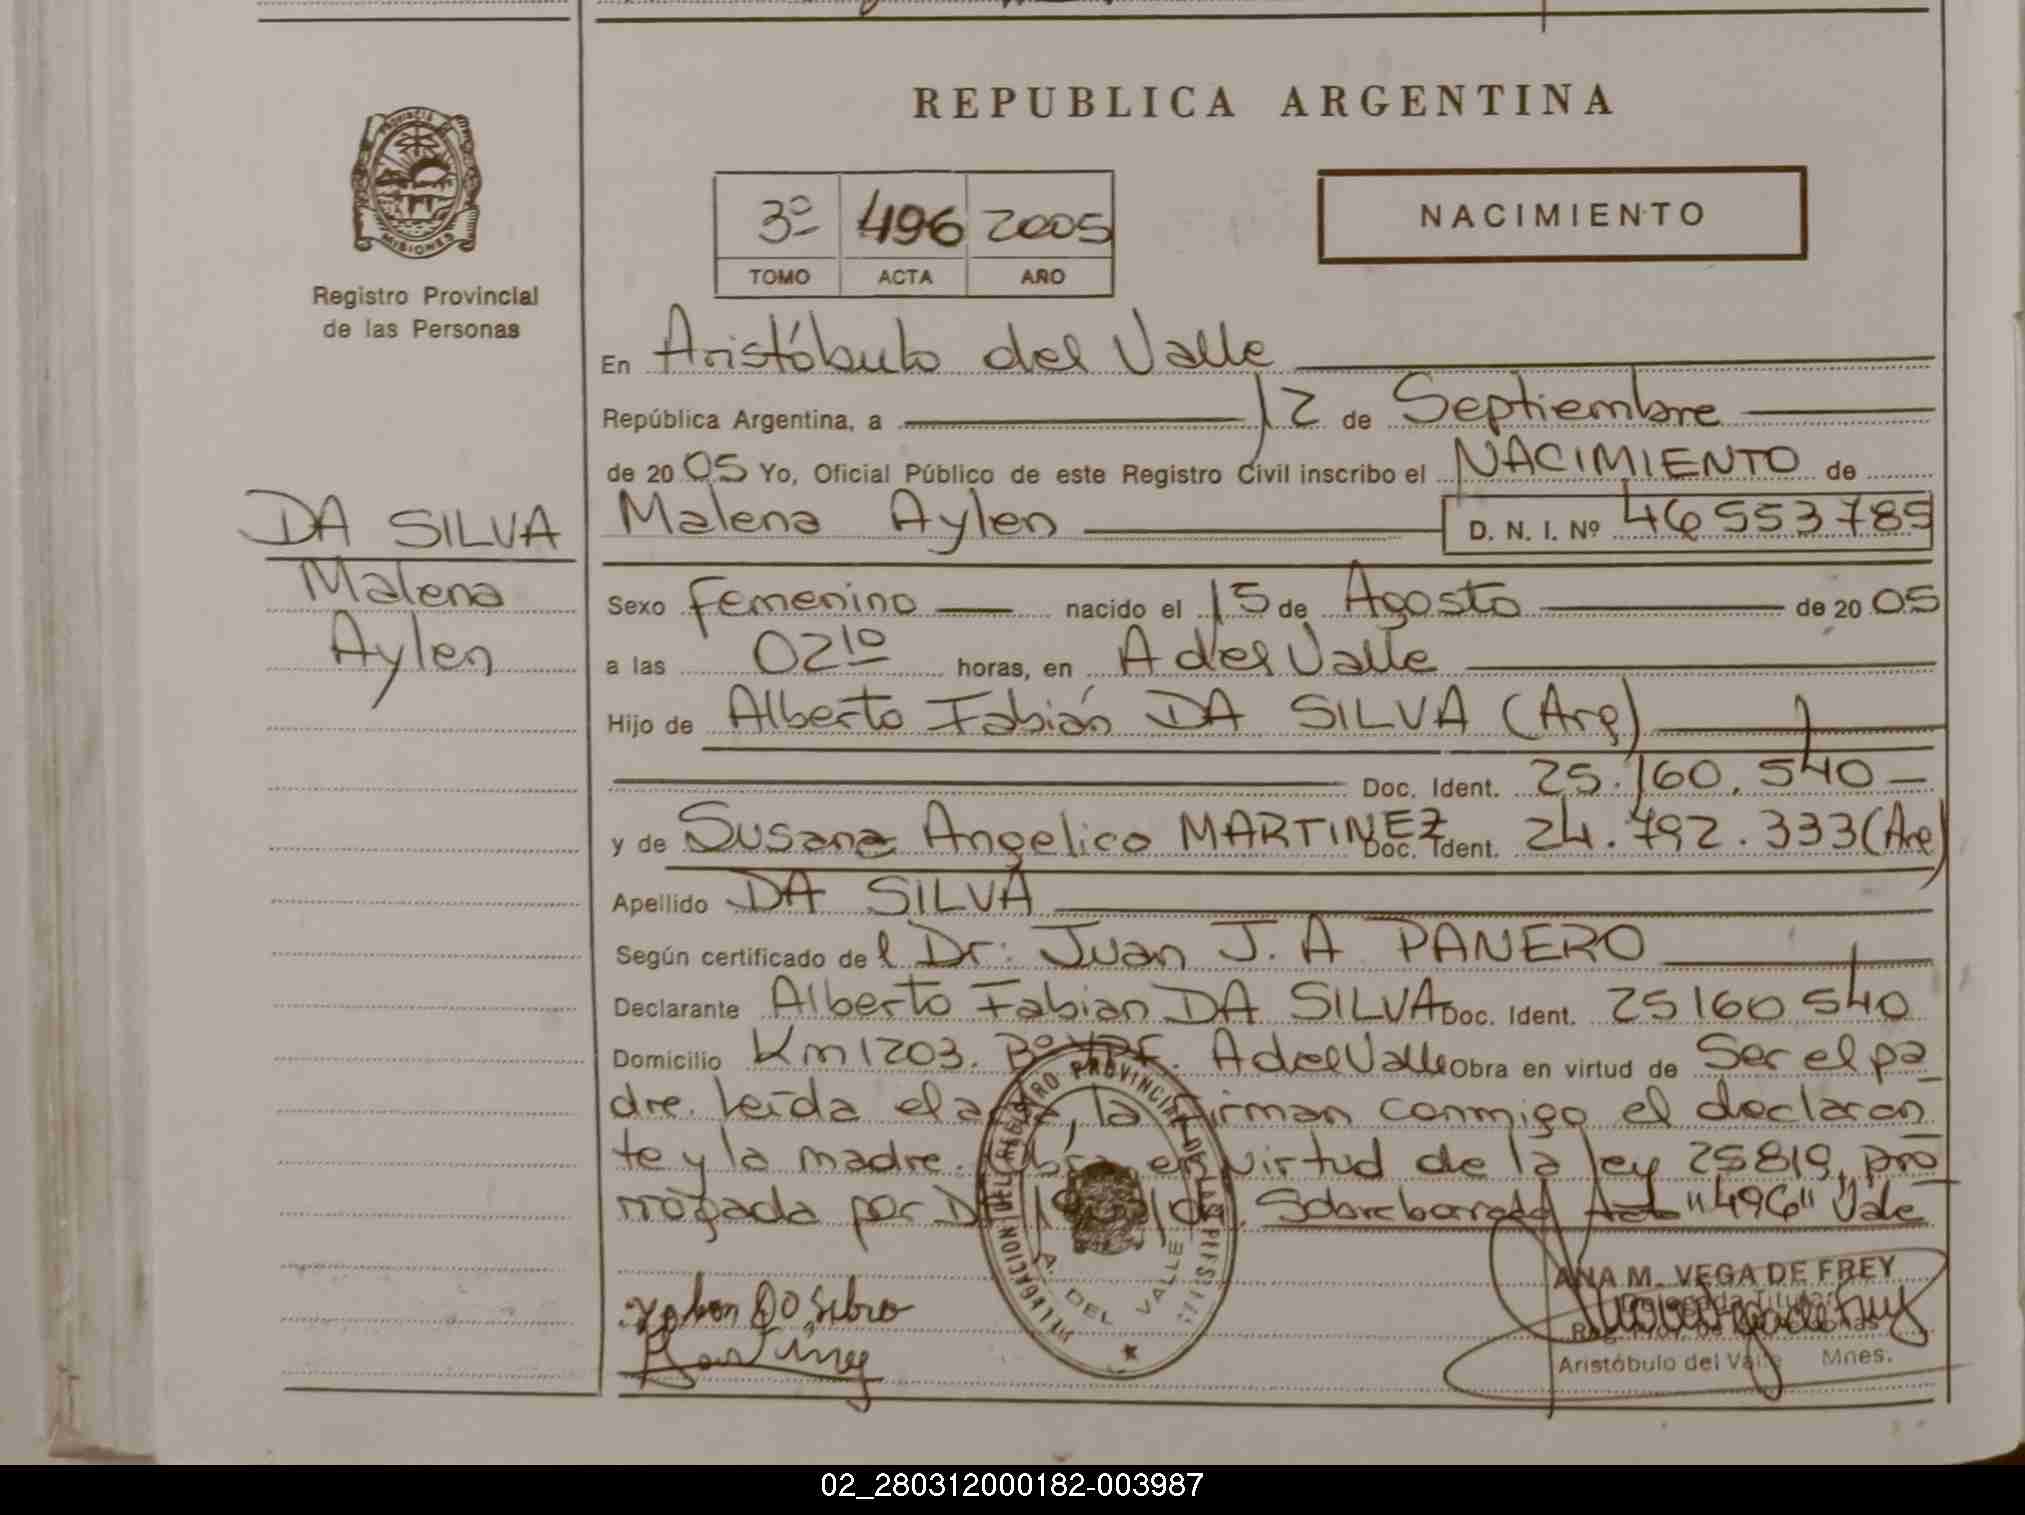 REPUBLICA ARGENTINA
PROVINCIA DE
MISIONES
Registro Provincial
de las Personas
3º 496 2005
TOMO ACTA AÑO
NACIMIENTO
En Aristóbulo del Valle
República Argentina, a 12 de Septiembre
de 2005 Yo, Oficial Público de este Registro Civil inscribo el NACIMIENTO de
DA SILVA
Malena
Aylen
Malena Aylen D. N. I. Nº 46553785
Sexo Femenino nacido el 15 de Agosto de 2005
a las 02 10 horas, en A del Valle
Hijo de Alberto Fabián DA SILVA (Arg)
Doc. Ident. 25.160.540
y de Susana Angelica MARTINEZ Doc. Ident. 24.792.333 (Arg)
Apellido DA SILVA
Según certificado del Dr: Juan J. A PANERO
Declarante Alberto Fabian DA SILVA Doc. Ident. 25160540
Domicilio Km 1203. Bº YPF. A del Valle Obra en virtud de Ser el pa
dre. Leída el acta, la firman conmigo el declaran
te y la madre. Obra en virtud de la ley 25819, pro
rrogada por Sobreborrado Acta "496" Vale
DELEGACION DEL REGISTRO PROVINCIAL DE LAS PERSONAS
A. DEL VALLE
Martinez
ANA M. VEGA DE FREY
Delegada Titular
Aristóbulo del Valle Mnes.
02_280312000182-003987